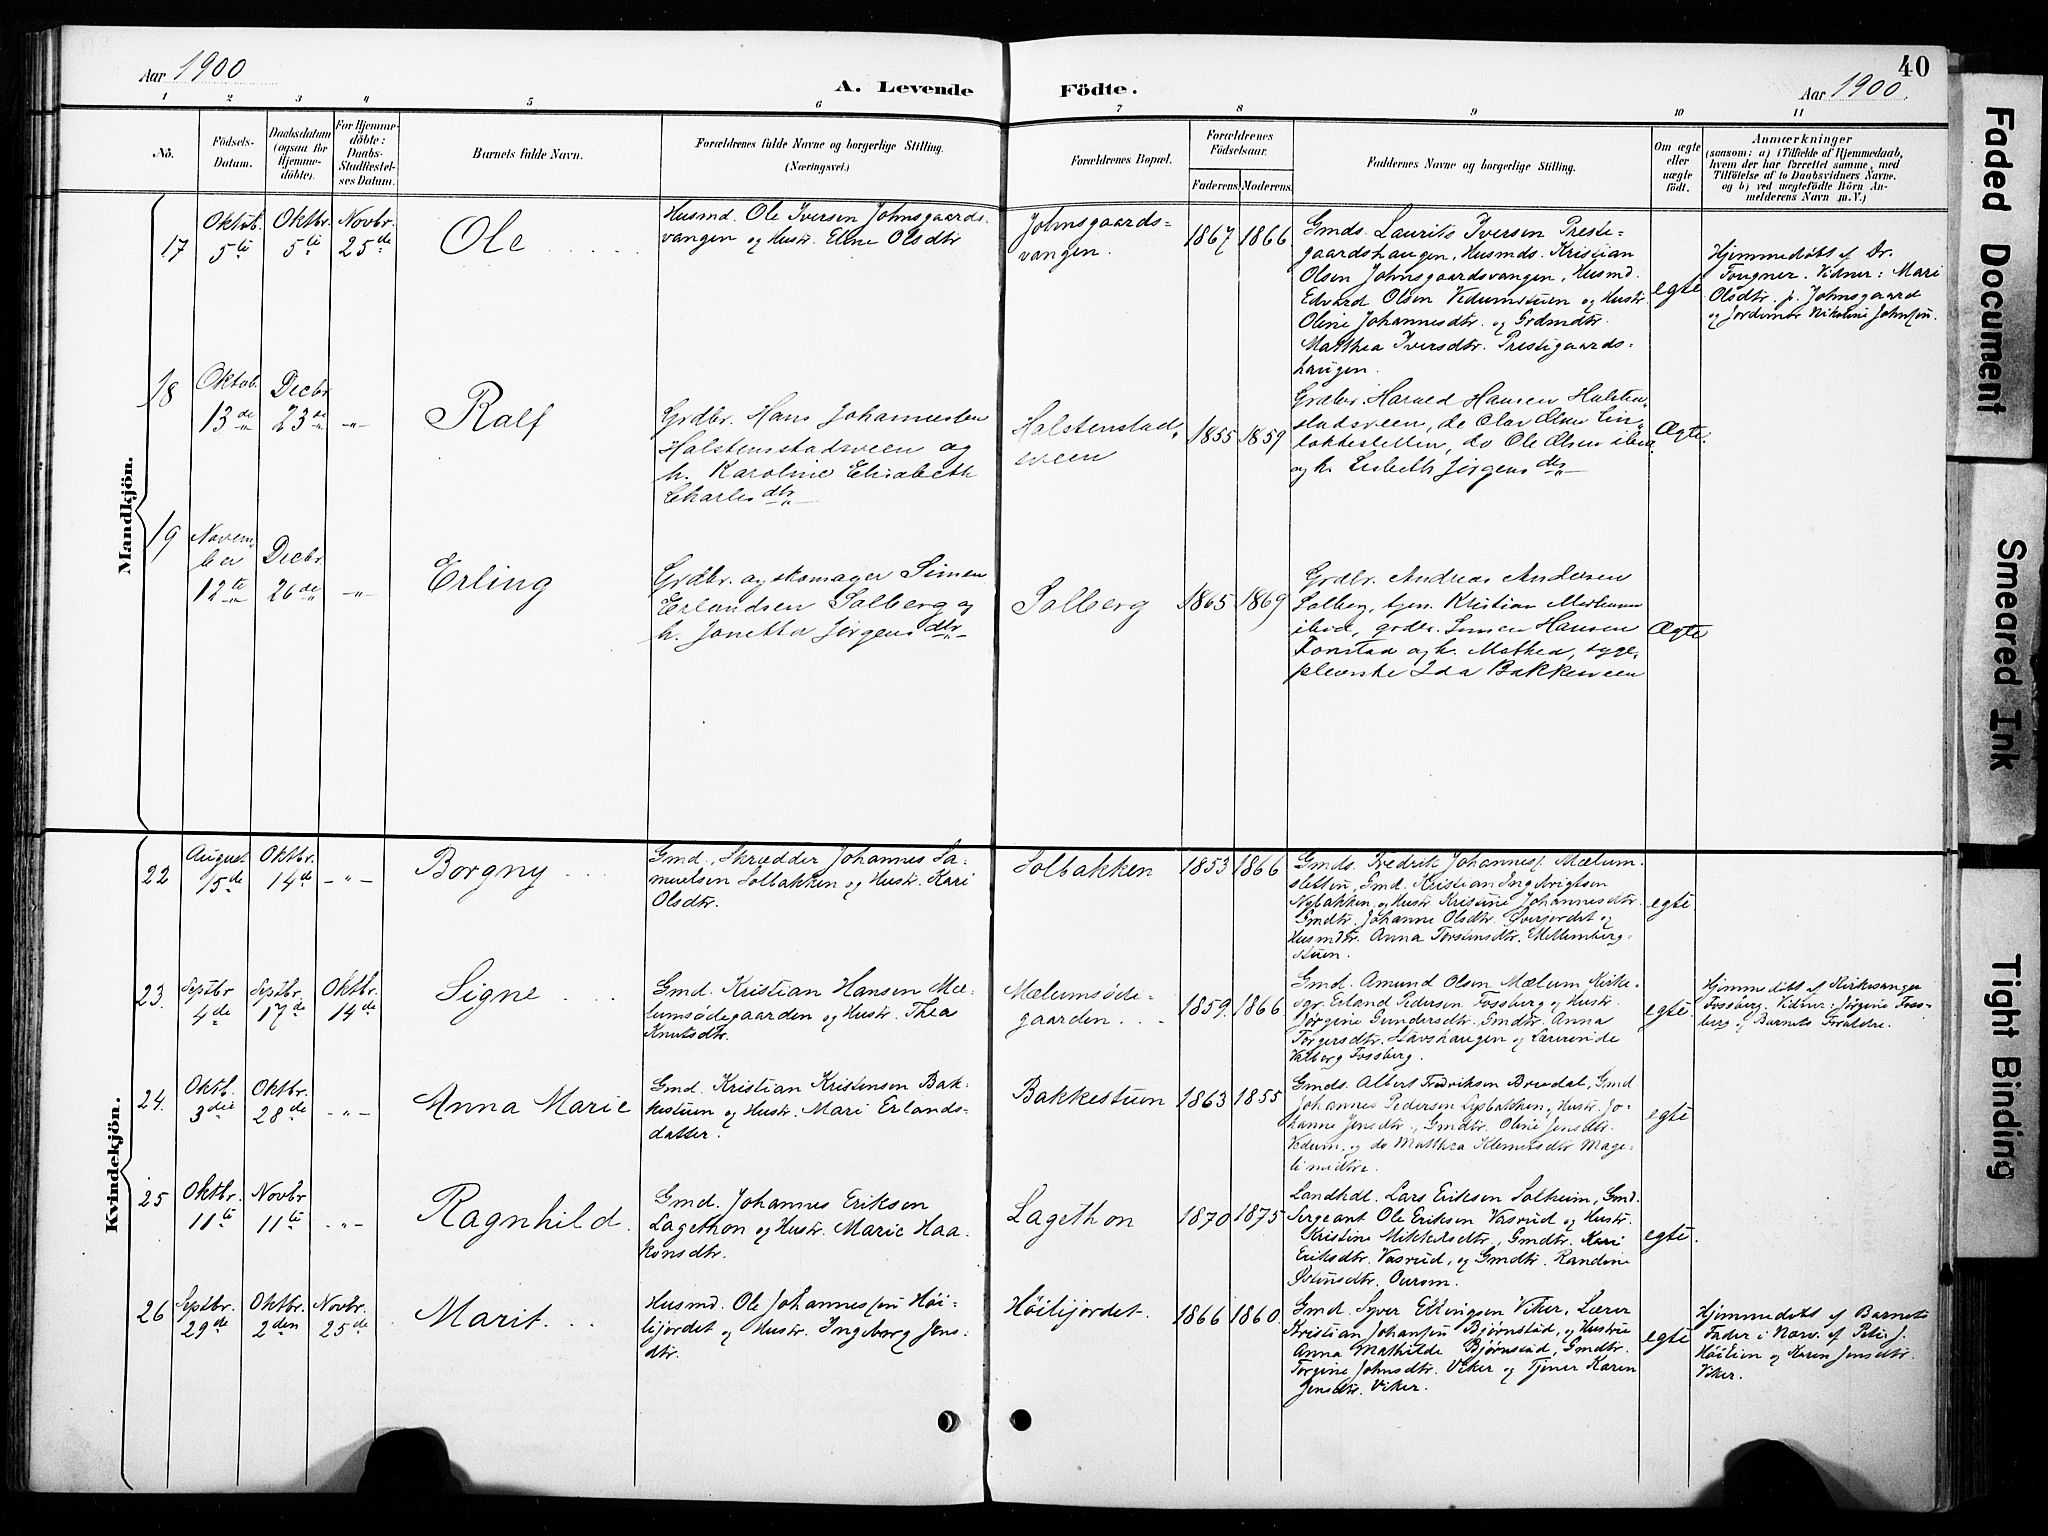 40
Aar 1900
A. Levende Födte.
Aar 1900.
1 2 3 4 5 6 7 8 9 10 11
Nö.
Födsels-
Datum.
Daabsdatum
(ogsaa for
Hjemme-
döbte).
For Hjemme-
döbte:
Daabs-
Stadfæstel-
ses Datum.
Barnets fulde Navn.
Forældrenes fulde Navne og borgerlige Stilling.
(Næringsvei.)
Forældrenes Bopæl.
Forældrenes
Födselsaar.
Faderens. Moderens.
Faddernes Navne og borgerlige Stilling.
Om ægte
eller
uægte
födt.
Anmærkninger
(saasom: a) i Tilfælde af Hjemmedaab,
hvem der har forrettet samme, med
Tilföielse af to Daabsvidners Navne.
og b) ved uægtefödte Börn An-
melderens Navn m. V.)
Mandkjön.
17
Oktob.
5te
Oktbr.
5te
Novbr.
25de
Ole
Husmd. Ole Iversen Johnsgaards-
vangen og Hustr. Eline Olsdtr
Johnsgaards-
vangen.
1867 1866
Gmds. Laurits Iversen Preste-
gaardshaugen, Husmds. Kristian
Olsen Johnsgaardsvangen, Husmd.
Edvard Olsen Vedumstuen og Hustr
Oline Johannesdtr. og Grdmdtr.
Matthea Iversdtr. Prestegaards-
haugen.
egte
Hjemmedøbt af Dr.
Tougner. Vidner: Mari
Olsdtr. p. Johnsgaard
og Jordemor Nikoline Johnsen.
18
Oktob.
13de
Decbr
23de
-"-
Ralf
Grdbr. Hans Johannesen
Halstensstadsveen og
h. Karoline Elisabeth
Charlesdtr
Halstenstad-
sveen
1855 1859
Grdbr. Harald Hansen Halsten-
stadsveen, do Olav Olsen
do Ole Olsen ibid.
og h. Lisbeth Jørgensdtr
Ægte.
19
Novem-
ber
12te
Decbr
26de
-"-
Erling
Grdbr. og skomager Simen
Erlandsen Solberg og
h. Janetta Jørgensdtr
Solberg
1865 1869
Grdbr. Andreas Andersen
Solberg, tjen. Kristian
ibid, grdbr. Simen Hansen
Fonstad og h. Mathea, syge-
pleierske Ida Bakkesveen
Ægte
Kvindekjön.
22
August
15de
Oktbr.
14de
-"-
Borgny
Gmd., Skrædder Johannes Sa-
muelsen Solbakken og Hustr. Kari
Olsdtr.
Solbakken
1853 1866
Gmds. Fredrik Johanness. Mælum-
sletten, Gmd. Kristian Ingebrigtsen
Nybakken, og Hustr Kristine Johannesdtr.
Gmdtr. Johanne Olsdtr. Øverjordet og
Husmdtr. Anna Torstensdtr. Mellemberg-
stuen.
egte
23.
Septbr
4de
Septbr.
17de
Oktbr.
14de
Signe
Gmd. Kristian Hansen Mæ-
lumsødegaarden og Hustr. Thea
Knutsdtr.
Mælumsøde-
gaarden.
1859 1866
Gmd. Amund Olsen Mælum Kirke-
sgr. Erland Pedersen Fossberg og Hustr.
Jørgine Gundersdtr. Gmdtr. Anna
Torgersdtr. Stavshaugen og Lærerinde
Valborg Fossberg.
egte.
Hjemmedøbt af Kirkesanger
Fossberg. Vidner: Jørgine Foss-
berg og Barnets Forældre.
24.
Oktb.
3die
Oktbr.
28de
-"-
Anna Marie
Gmd. Kristian Kristensen Bak-
kestuen og Hustr. Mari Erlands-
datter.
Bakkestuen
1863 1855
Gmds. Albert Fredriksen Bredal, Gmd
Johannes Pedersen Lysbakken og Hustr. Jo-
hanne Jensdtr., Gmdtr. Oline Jensdtr.
Vedum, og do Matthea Klemetsdtr Mage-
limedtre.
egte
25
Oktbr.
11te
Novbr
11te
-"-
Ragnhild.
Gmd. Johannes Eriksen
Lagethon og Hustr. Marie Haa-
konsdtr.
Lagethon
1870 1875
Landhdl. Lars Eriksen Solheim, Gmd.
Sergeant Ole Eriksen Vasrud og Hustr.
Kristine Mikkelsdtr., Gmdtr. Kari
Eriksdtr. Vasrud, og Gmdtr. Randine
Østensdtr. Aurom.
egte.
26
Septbr.
29de
Oktbr.
2den
Novbr.
25de
Marit.
Husmd. Ole Johannessen Høi-
lijordet og Hustr. Ingeborg Jens-
dtr.
Høilijordet.
1866 1860.
Gmd. Syver Ellingsen Viker, Lærer
Kristian Johansen Bjørnstad, og Hustrue
Anna Mathilde Bjørnstad, Gmdtr.
Torgine Johnsdtr. Viker og Tjener Karen
Jensdtr. Viker.
egte
Hjemmedøbt af Barnets
Fader i Narv. af Peter J.
Høilien og Karen Jensdtr.
Viker.
Faded Document
Smeared Ink
Tight Binding